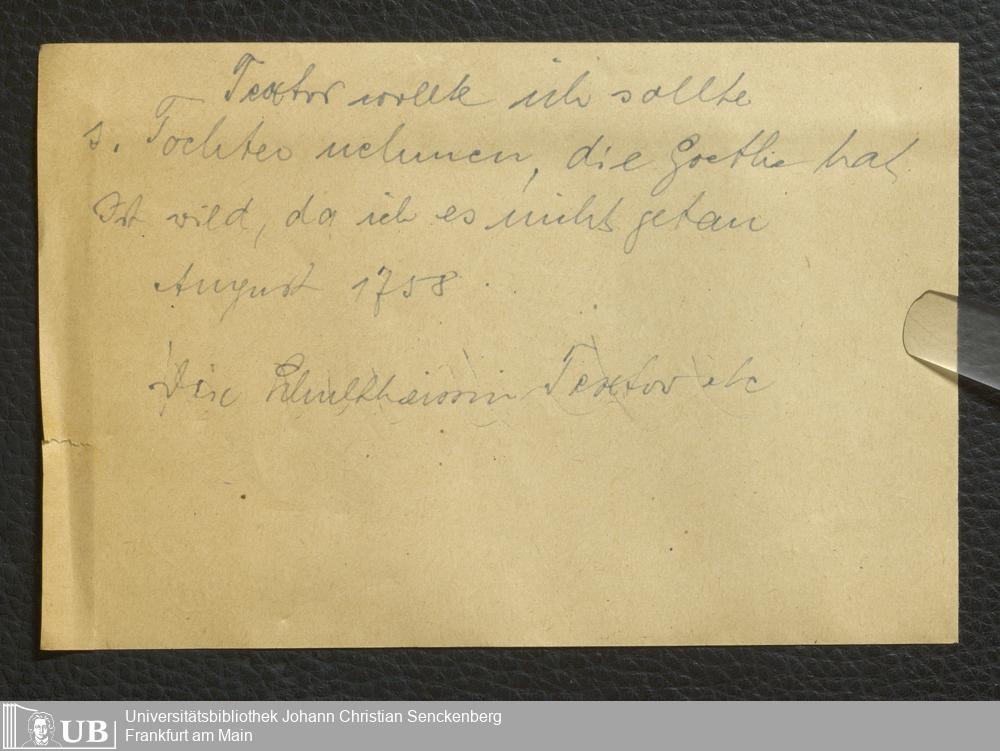 Textor wollte ich sollte
s. Tochter nehmen, die Goethe hat.
Ist wild, da ich es nicht getan
August 1758.
Die Schultheissin Textor etc
UB
Universitätsbibliothek Johann Christian Senckenberg
Frankfurt am Main